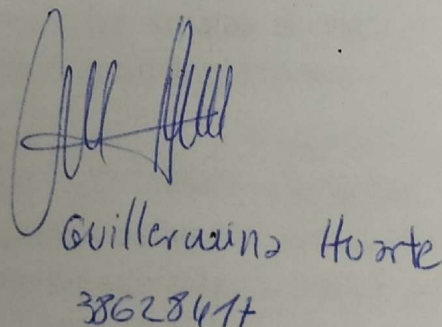 Guillermina Huarte
38628417